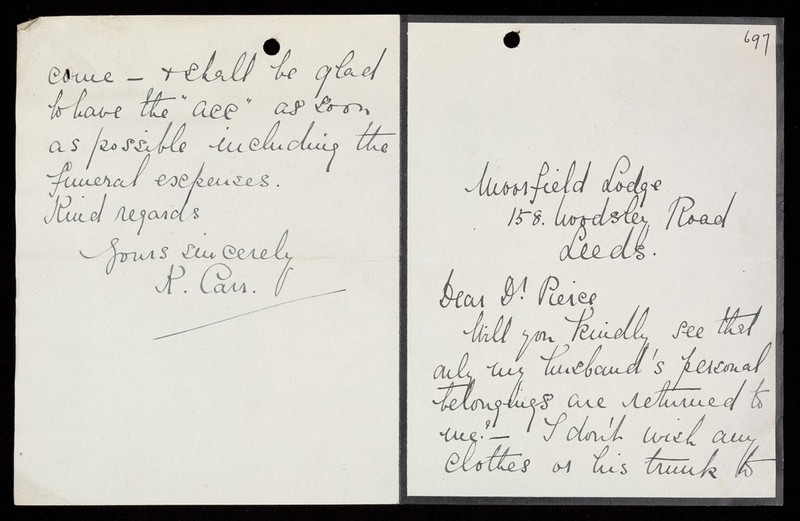 697
Moorfield Lodge
158. Woodsley Road
Leeds.
Dear Dr Pierce
Will you kindly see that
only my husband's personal
belongings are returned to
me? — I don't wish any
clothes or his trunk to
come — & shall be glad
to have the "acc" as soon
as possible including the
funeral expenses.
Kind regards
Yours sincerely
K. Carr.